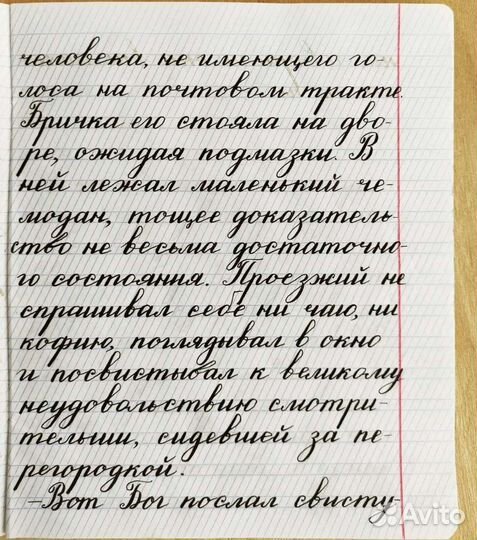 человека, не имеющего го-
лоса на почтовом тракте.
Бричка его стояла на дво-
ре, ожидая подмазки. В
ней лежал маленький че-
модан, тощее доказатель-
ство не весьма достаточно-
го состояния. Проезжий не
спрашивал себе ни чаю, ни
кофию, поглядывал в окно
и посвистывал к великому
неудовольствию смотри-
тельши, сидевшей за пе-
регородкой.
-Вот Бог послал свисту-
Avito